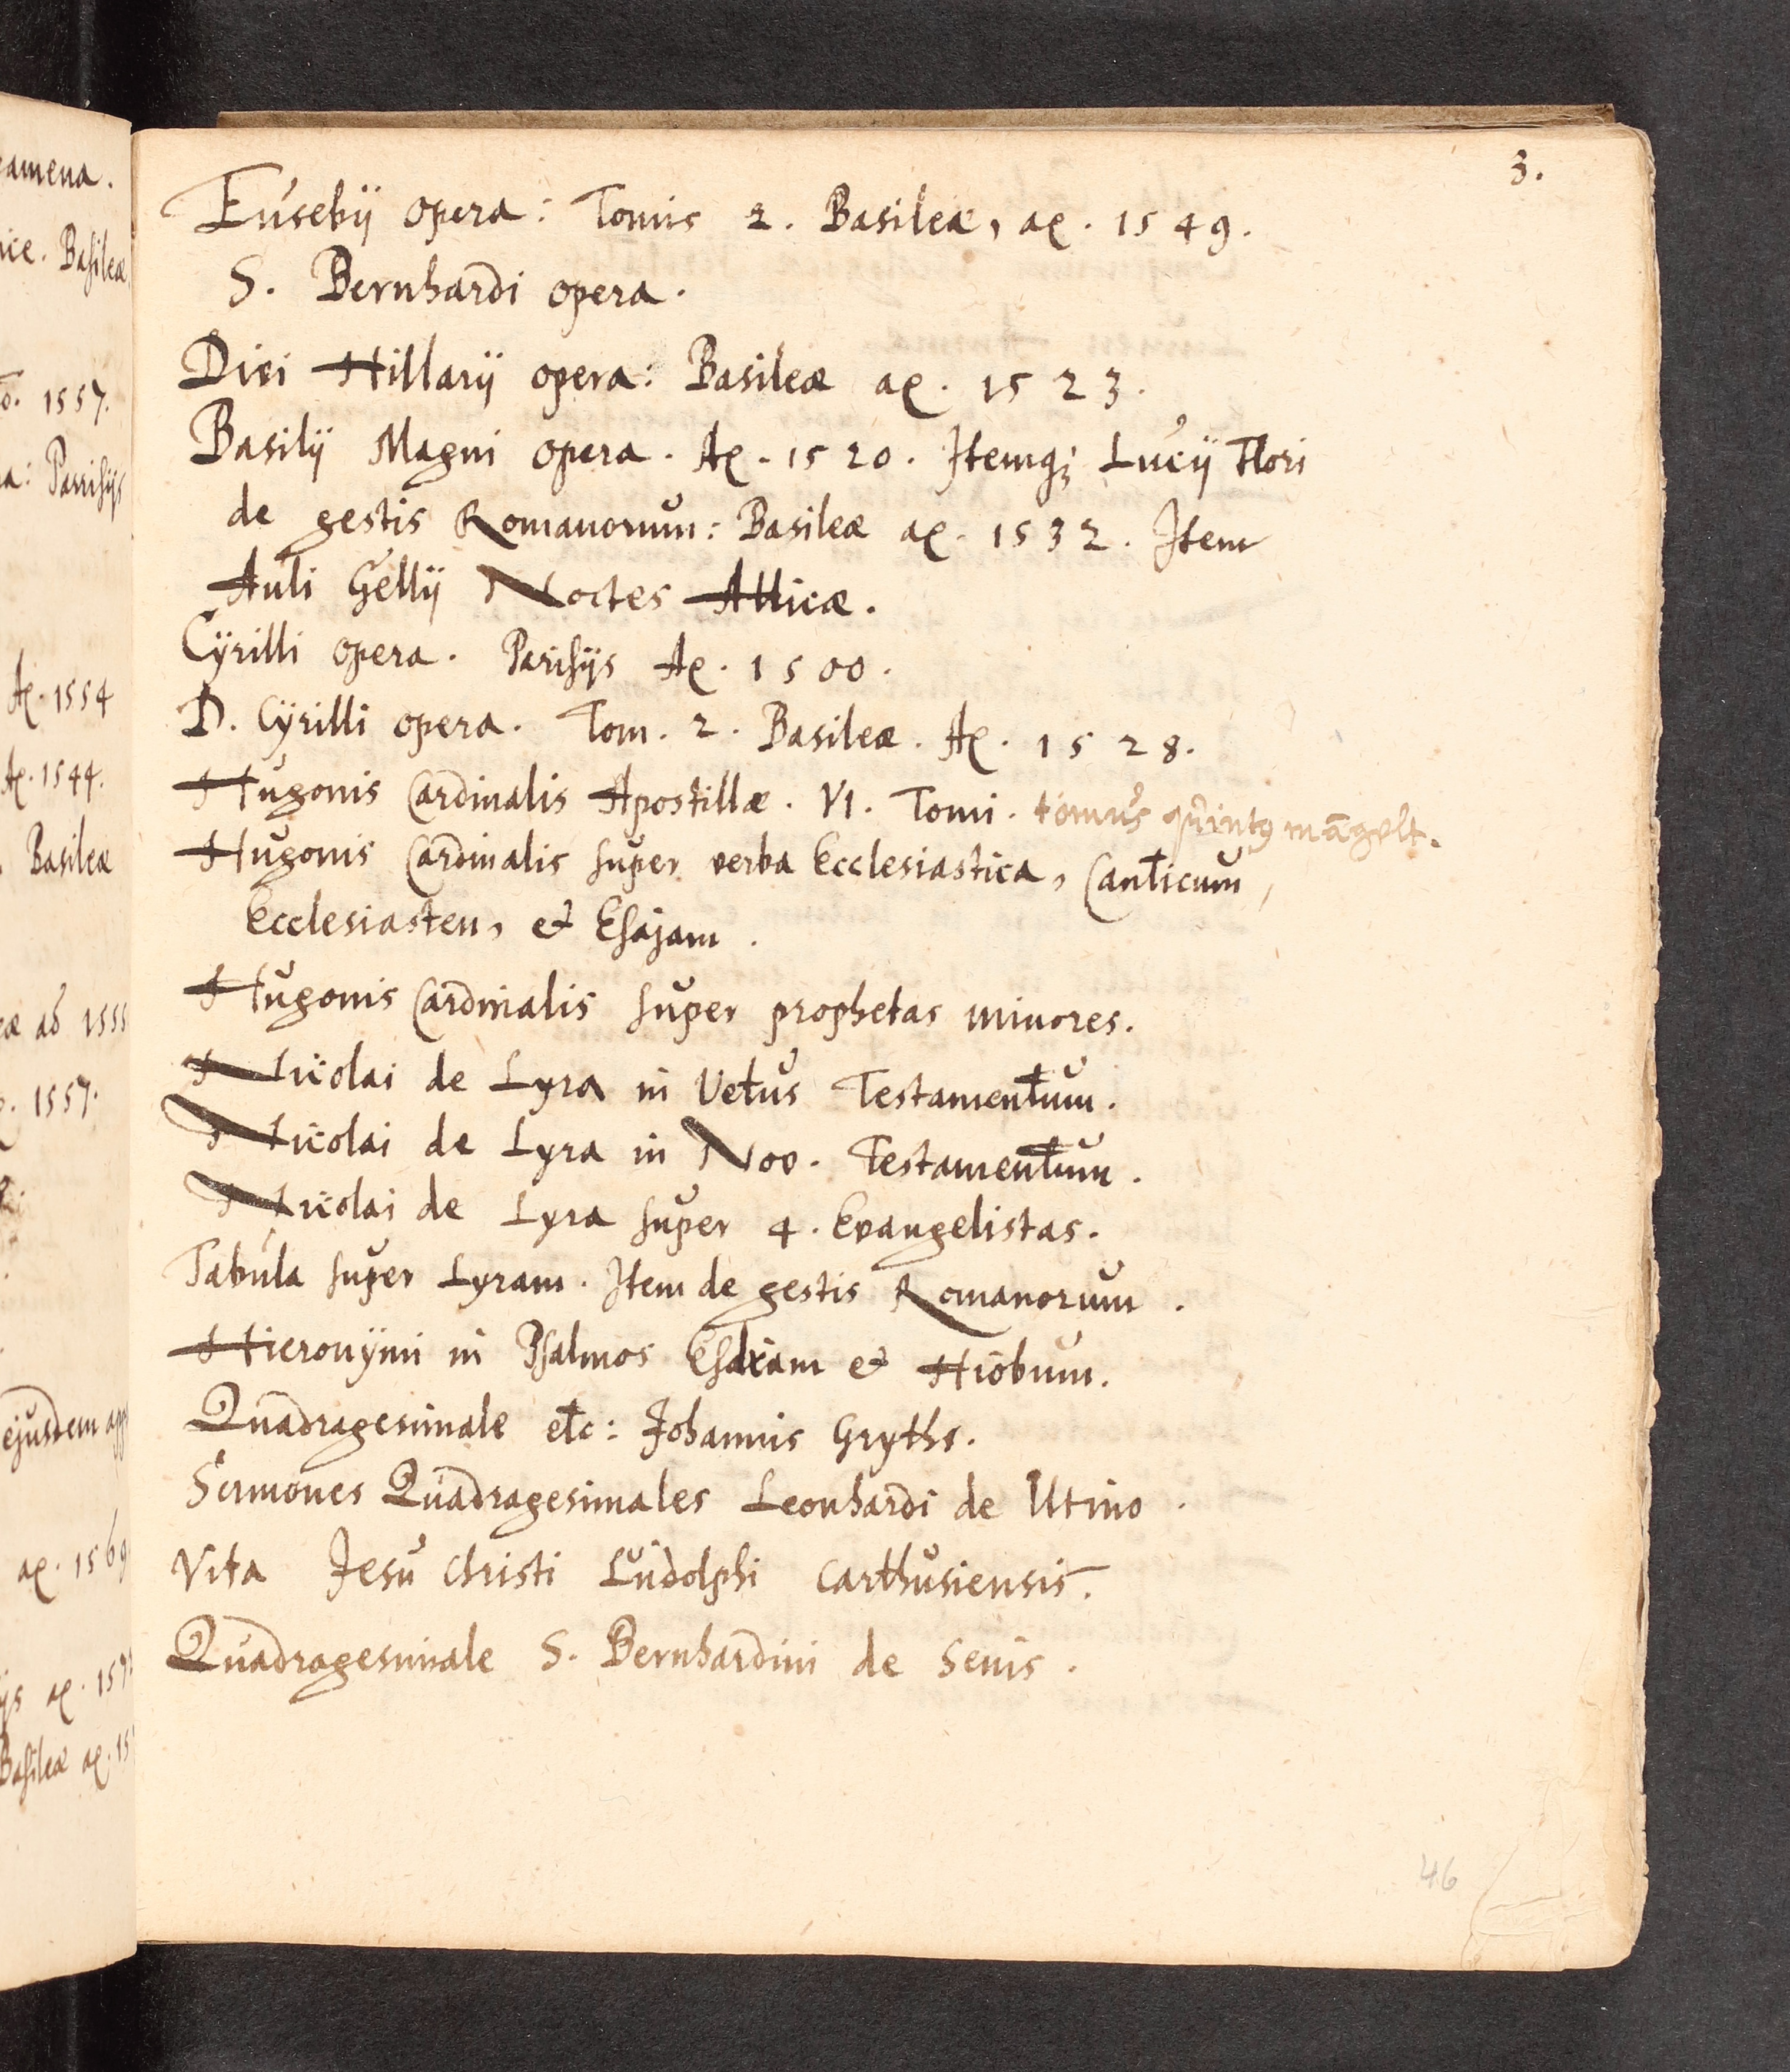 3.
Eusebij opera: Tomis 2. Basileæ, aõ. 1549.
S. Bernhardi opera.
Divi Hillarij opera: Basileæ aõ. 1523.
Basilij Magni opera. Aõ. 1520. Itemq; Lucij Flori
de gestis Romanorum: Basileæ aõ. 1532. Item
Auli Gellij Noctes Atticæ.
Cÿrilli opera. Parisijs Aõ. 1500.
D. Cÿrilli opera. Tom. 2. Basileæ. Aõ. 1528.
Hugonis Cardinalis Apostillæ. VI. Tomi. tomus quintus mãgelt.
Hugonis Cardinalis super verba Ecclesiastica, Canticum,
Ecclesiasten, et Esajam.
Hugonis Cardinalis super prophetas minores.
Nicolai de Lyra in Vetus Testamentum.
Nicolai de Lyra in Nov. Testamentum.
Nicolai de Lyra super 4. Evangelistas.
Tabula super Lyram. Item de gestis Romanorum.
Hieronÿmi in Psalmos Esdram et Hiobum.
Quadragesimale etc: Johannis Gryths.
Sermones Quadragesimales Leonhardi de Utino.
Vita Jesu Christi Ludolphi Carthusiensis.
Quadragesimale S. Bernhardini de Senis.
46